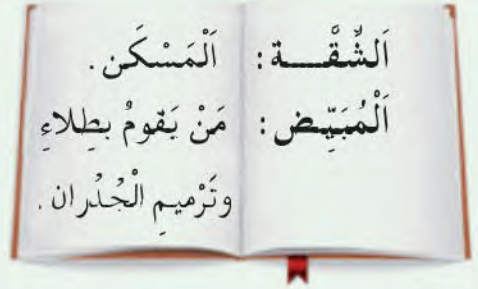 اَلشُّقَّـــة : اَلْمَسْكَن .
اَلْمُبَيِّـض : مَنْ يَقومُ بطِلاءِ
وتَرْميمِ الْجُدْران .